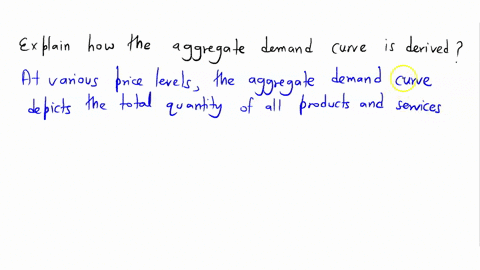 Explain how the aggregate demand curve is derived?
At various price levels, the aggregate demand curve
depicts the total quantity of all products and services